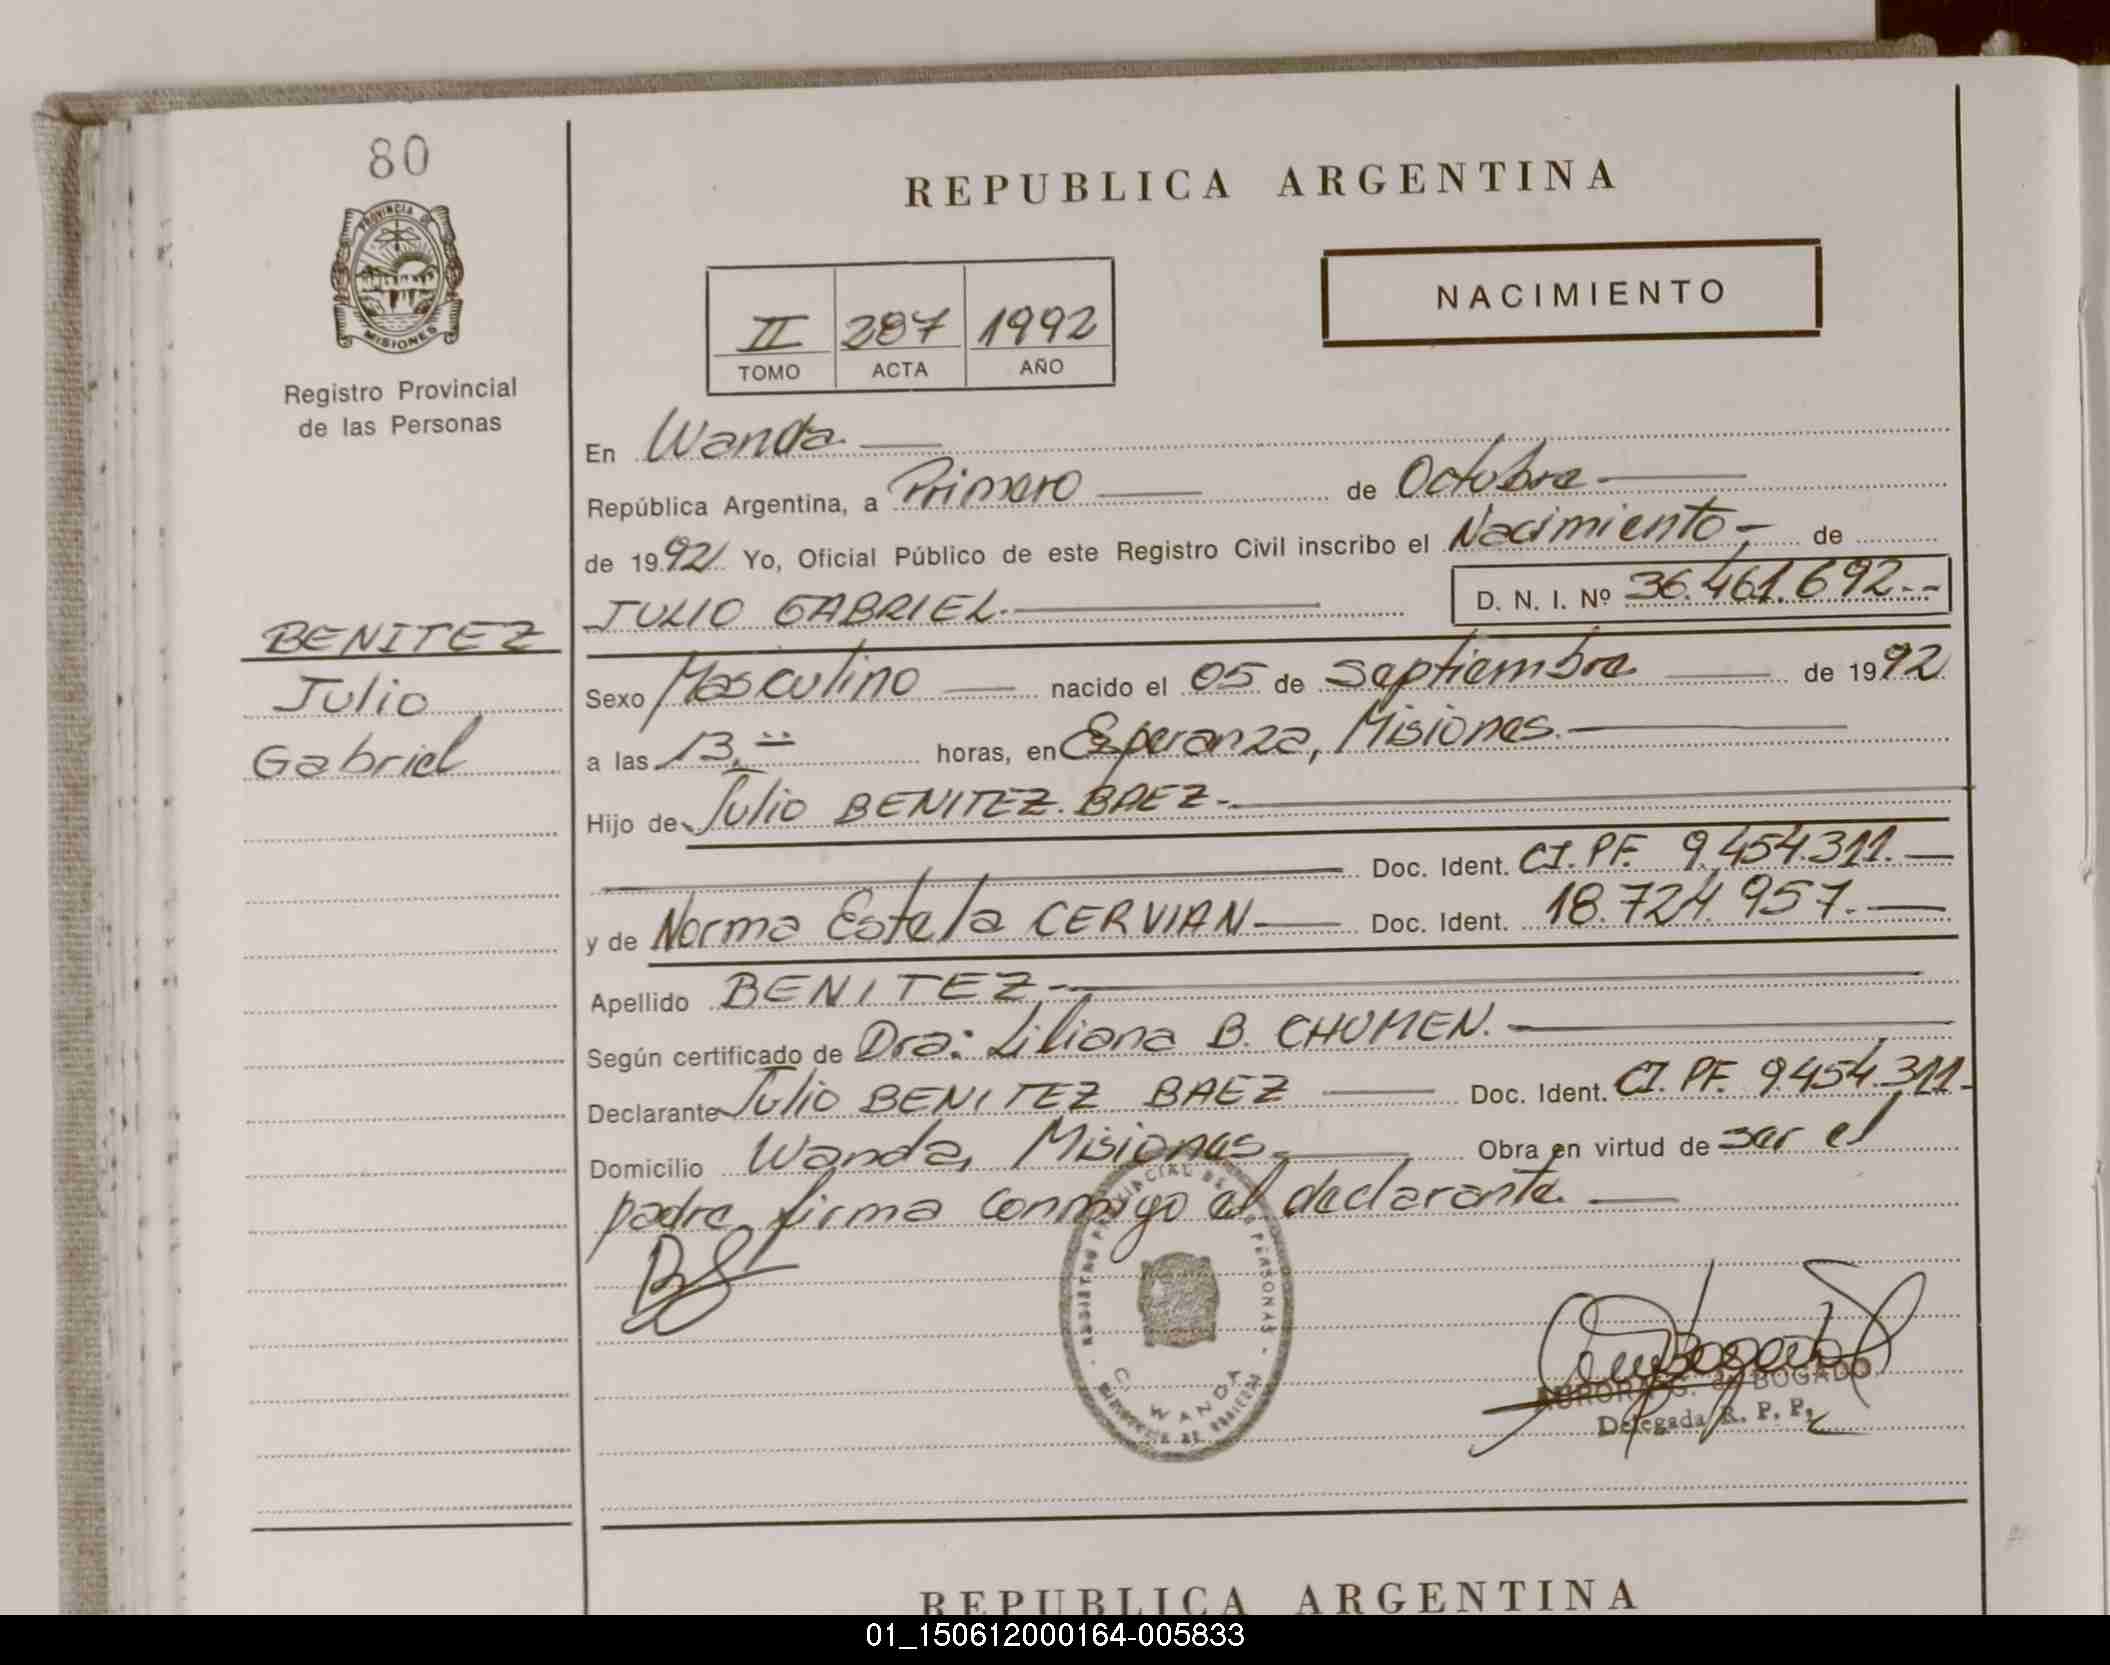 80
PROVINCIA DE
MISIONES
Registro Provincial
de las Personas
REPUBLICA ARGENTINA
NACIMIENTO
II 287 1992
TOMO ACTA AÑO
En Wanda
República Argentina, a Primero de Octubre
de 1992 Yo, Oficial Público de este Registro Civil inscribo el Nacimiento de
JULIO GABRIEL. D. N. I. Nº 36.461.692.--
BENITEZ
Julio
Gabriel
Sexo Masculino nacido el 05 de Septiembre de 1992
a las 13. horas, en Esperanza, Misiones.
Hijo de Julio BENITEZ BAEZ.
Doc. Ident. CI. PF. 9.454.311.
y de Norma Estela CERVIAN Doc. Ident. 18.724.957.
Apellido BENITEZ.
Según certificado de Dra: Liliana B. CHUMEN.
Declarante Julio BENITEZ BAEZ Doc. Ident. CI. PF. 9.454.311.
Domicilio Wanda, Misiones. Obra en virtud de ser el
padre, firma conmigo el declarante.
REGISTRO PROVINCIAL DE LAS PERSONAS
WANDA
de BOGADO
Delegada R. P. P.
REPUBLICA ARGENTINA
01_150612000164-005833